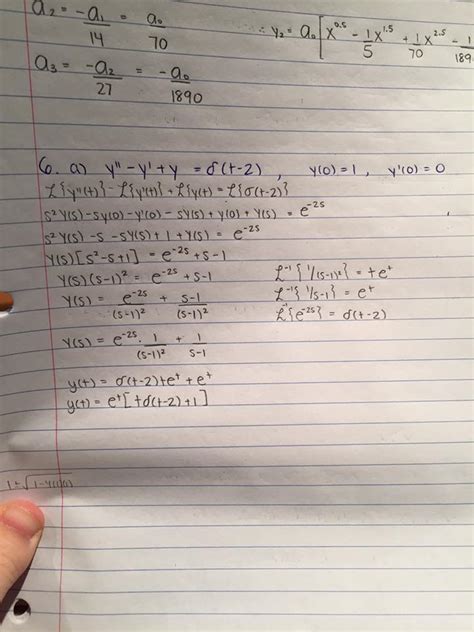 a₂ = -a₁/14 = a₀/70
∴ y₂ = a₀[x^0.5 - 1/5 x^1.5 + 1/70 x^2.5 - 1/189
a₃ = -a₂/27 = -a₀/1890
6. a) y'' - y' + y = δ(t-2) , y(0) = 1 , y'(0) = 0
ℒ{y''(t)} - ℒ{y'(t)} + ℒ{y(t) = ℒ{δ(t-2)}
s²Y(s) - sy(0) - y'(0) - sY(s) + y(0) + Y(s) = e^-2s
s²Y(s) - s - sY(s) + 1 + Y(s) = e^-2s
Y(s)[s² - s + 1] = e^-2s + s - 1
Y(s)(s-1)² = e^-2s + s - 1
ℒ⁻¹{1/(s-1)²} = te^t
Y(s) = e^-2s/(s-1)² + s-1/(s-1)²
ℒ⁻¹{1/s-1} = e^t
ℒ⁻¹{e^-2s} = δ(t-2)
Y(s) = e^-2s · 1/(s-1)² + 1/s-1
y(t) = δ(t-2)te^t + e^t
y(t) = e^t[tδ(t-2) + 1]